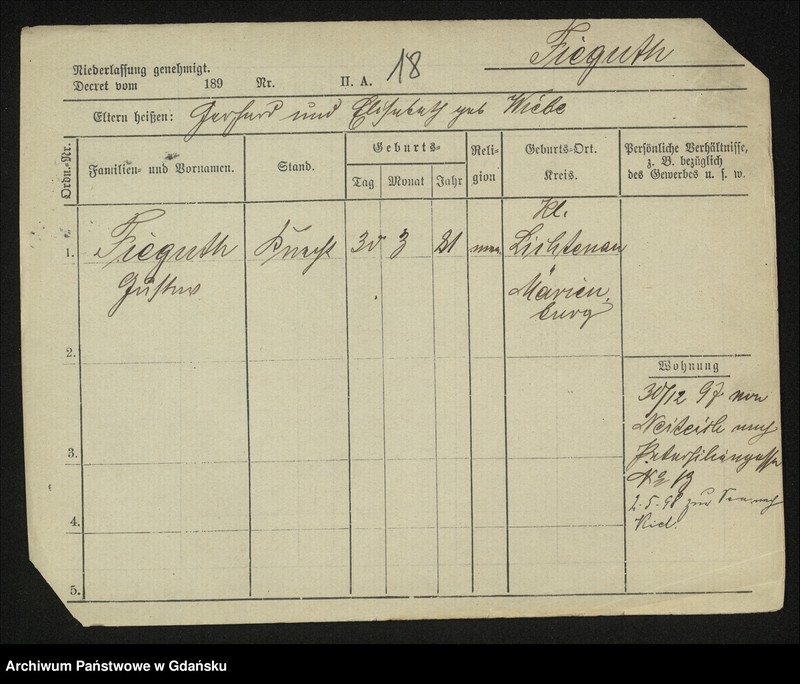 Fieguth
Niederlassung genehmigt.
Decret vom 189 Nr. II. A. 18
Eltern heißen: Gerhard und Elisabeth geb Wiebe
Ordn.-Nr.
Familien- und Vornamen.
Stand.
Geburts-
Tag Monat Jahr
Reli-
gion
Geburts-Ort.
Kreis.
Persönliche Verhältnisse,
z. B. bezüglich
des Gewerbes u. s. w.
Kl.
1. Fieguth Knecht 30 3 81 men. Lichtenau
Gustav Marien
burg
2.
Wohnung
30/12 97 von
Neiteich nach
Petersiliengasse
No
3.
2.5.98 zur See nach
Kiel.
4.
5.
Archiwum Państwowe w Gdańsku